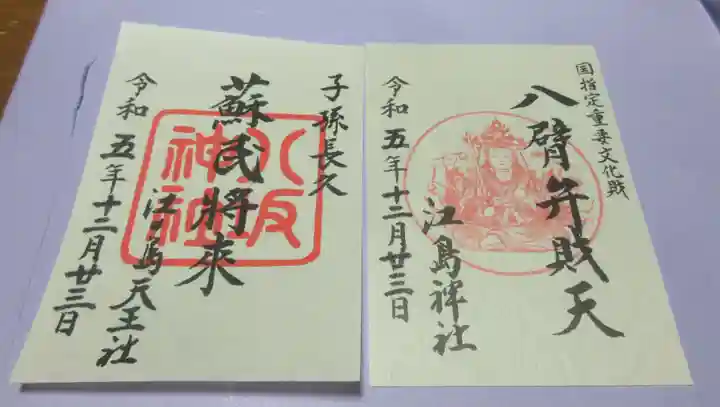 子孫長久
蘇民将来
八坂
神社
江ノ島天王社
令和五年十二月廿三日
国指定重要文化財
八臂弁財天
江島神社
令和五年十二月廿三日